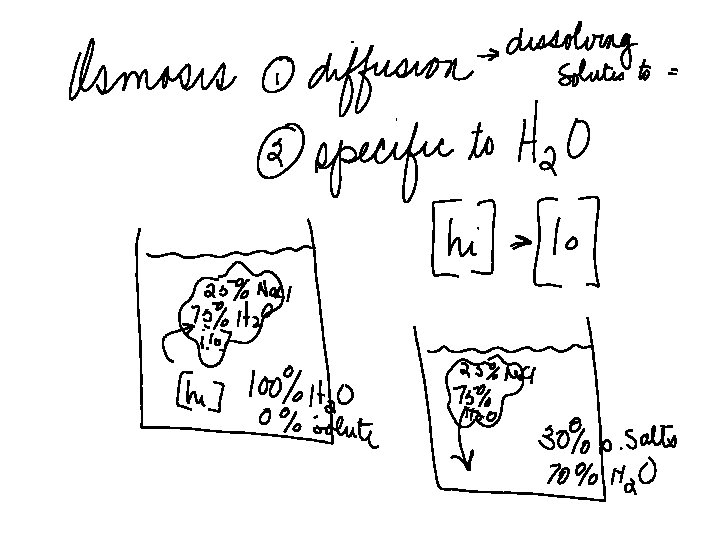 Osmosis ① diffusion → dissolving
solutes to =
② specific to H₂O
[hi] → [lo]
25% NaCl
75% H₂O
[hi] 100% H₂O
0% solute
25% NaCl
75%
H₂O
30% . Salts
70% H₂O